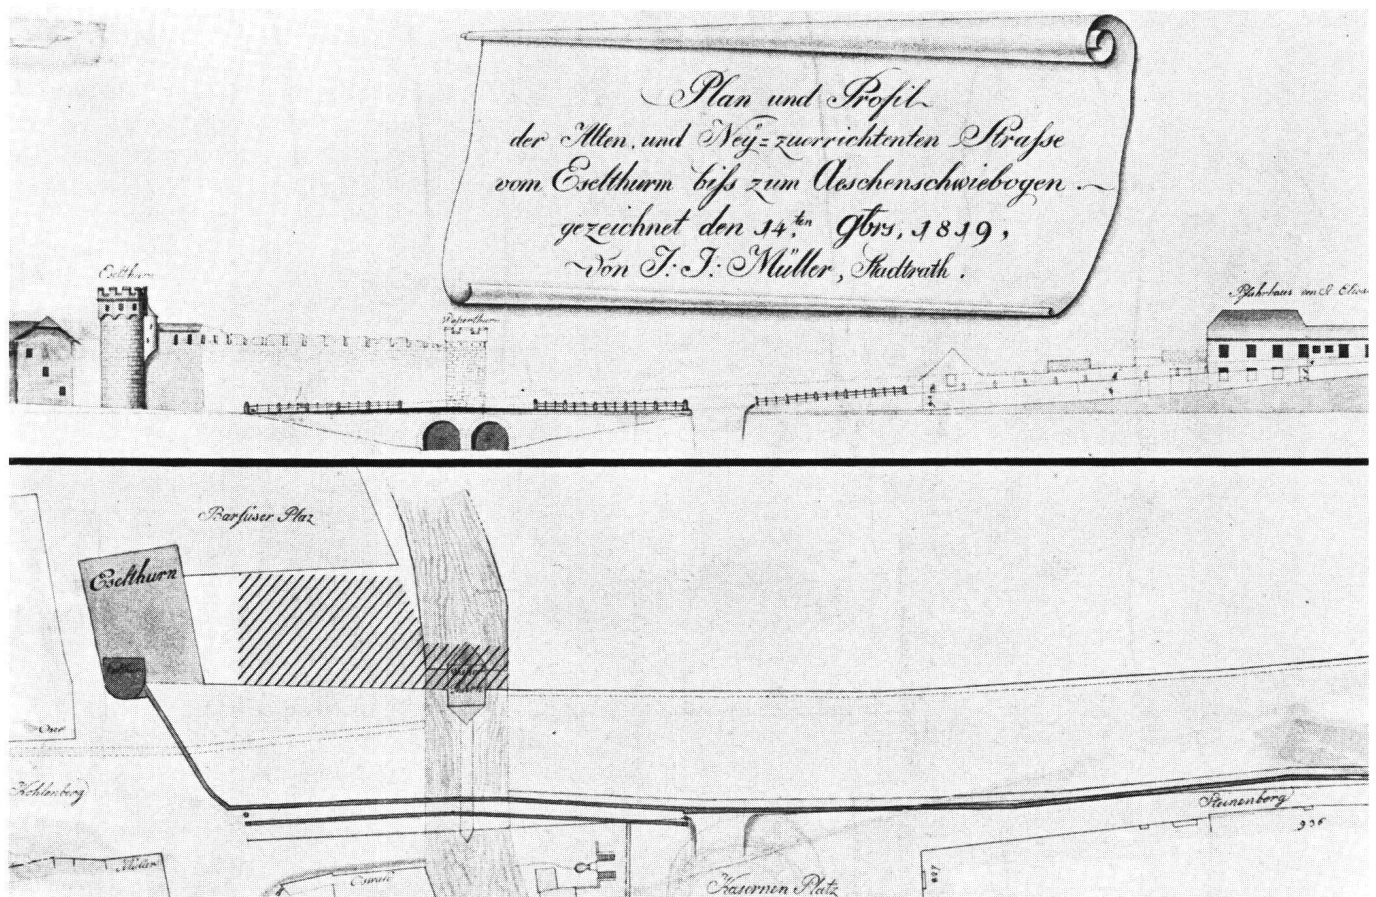 Plan und Profil
der Alten, und Neÿ=zuerrichtenten Strasse
vom Eselthurm biss zum Aeschenschwiebogen.
gezeichnet den 14.ten 9brs. 1819,
von J: J: Müller, Stadtrath.
Eselthurn
Pfahrhaus von St
Barfüser Plaz
Eselthurn
Kohlenberg
Steinenberg
936
Müller
Kasernen Platz